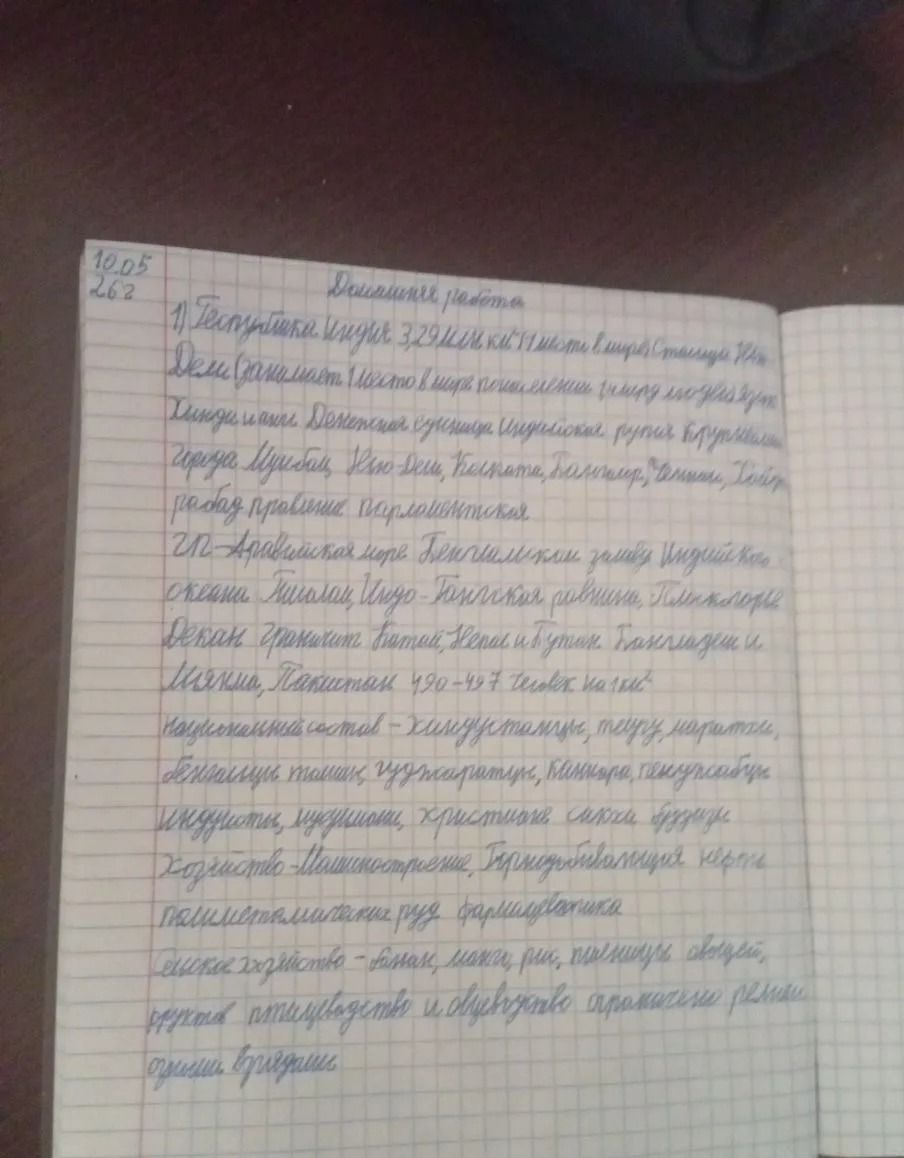 10.05
26г
Домашняя работа
1) Республика Индия 3,29 млн км² (7 место в мире) Столица Нью
Дели (занимает 1 место в мире по населению 1,4 млрд людей) язык
Хинди и англ Денежная единица Индийская рупия Крупнейшие
города Мумбаи, Нью-Дели, Колката, Бангалор, Ченнаи, Хайде
рабад правление парламентская
ГП-Аравийская море Бенгальским заливу Индийского
океана Гималаи, Индо-Гангская равнина, Плоскогорье
Декан граничит Китай, Непал и Бутан Бангладеш и
Мьянма, Пакистан 490-497 человек на 1 км²
национальный состав - хиндустанцы, телугу, маратхи,
бенгальцы тамилы, гуджаратцы, каннара, пенджабцы
индуисты, мусульмане, христиане сикхи буддизм
Хозяйство-Машиностроение, Горнодобывающая нефть
полиметаллических руд фармацевтика
Сельское хозяйство - банан, манго, рис, пшеницы овощей,
фруктов птицеводство и овцеводство ограничено религи
озными взглядами